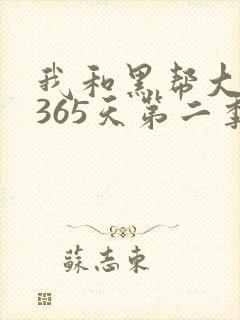 我和黑帮大
365天第二季
蘇志東